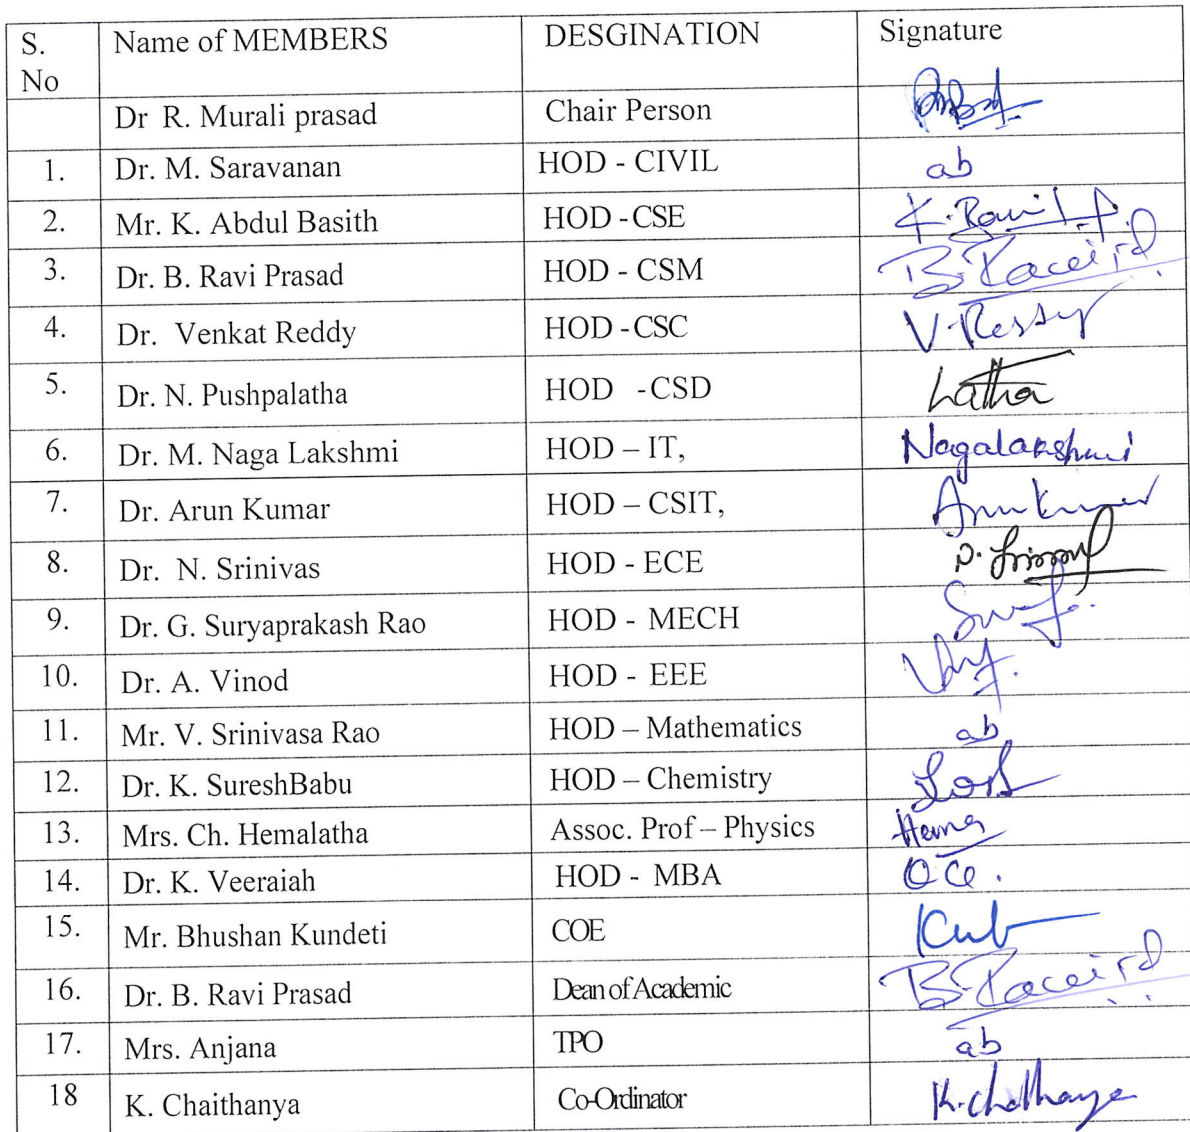 S. No Name of MEMBERS DESGINATION Signature
Dr R. Murali prasad Chair Person
1. Dr. M. Saravanan HOD - CIVIL ab
2. Mr. K. Abdul Basith HOD -CSE
3. Dr. B. Ravi Prasad HOD - CSM
4. Dr. Venkat Reddy HOD -CSC
5. Dr. N. Pushpalatha HOD -CSD Latha
6. Dr. M. Naga Lakshmi HOD – IT, Nagalakshmi
7. Dr. Arun Kumar HOD – CSIT, Arun Kumar
8. Dr. N. Srinivas HOD - ECE
9. Dr. G. Suryaprakash Rao HOD - MECH
10. Dr. A. Vinod HOD - EEE
11. Mr. V. Srinivasa Rao HOD – Mathematics ab
12. Dr. K. SureshBabu HOD – Chemistry
13. Mrs. Ch. Hemalatha Assoc. Prof – Physics Hema
14. Dr. K. Veeraiah HOD - MBA
15. Mr. Bhushan Kundeti COE
16. Dr. B. Ravi Prasad Dean of Academic
17. Mrs. Anjana TPO ab
18 K. Chaithanya Co-Ordinator K. Chaithanya